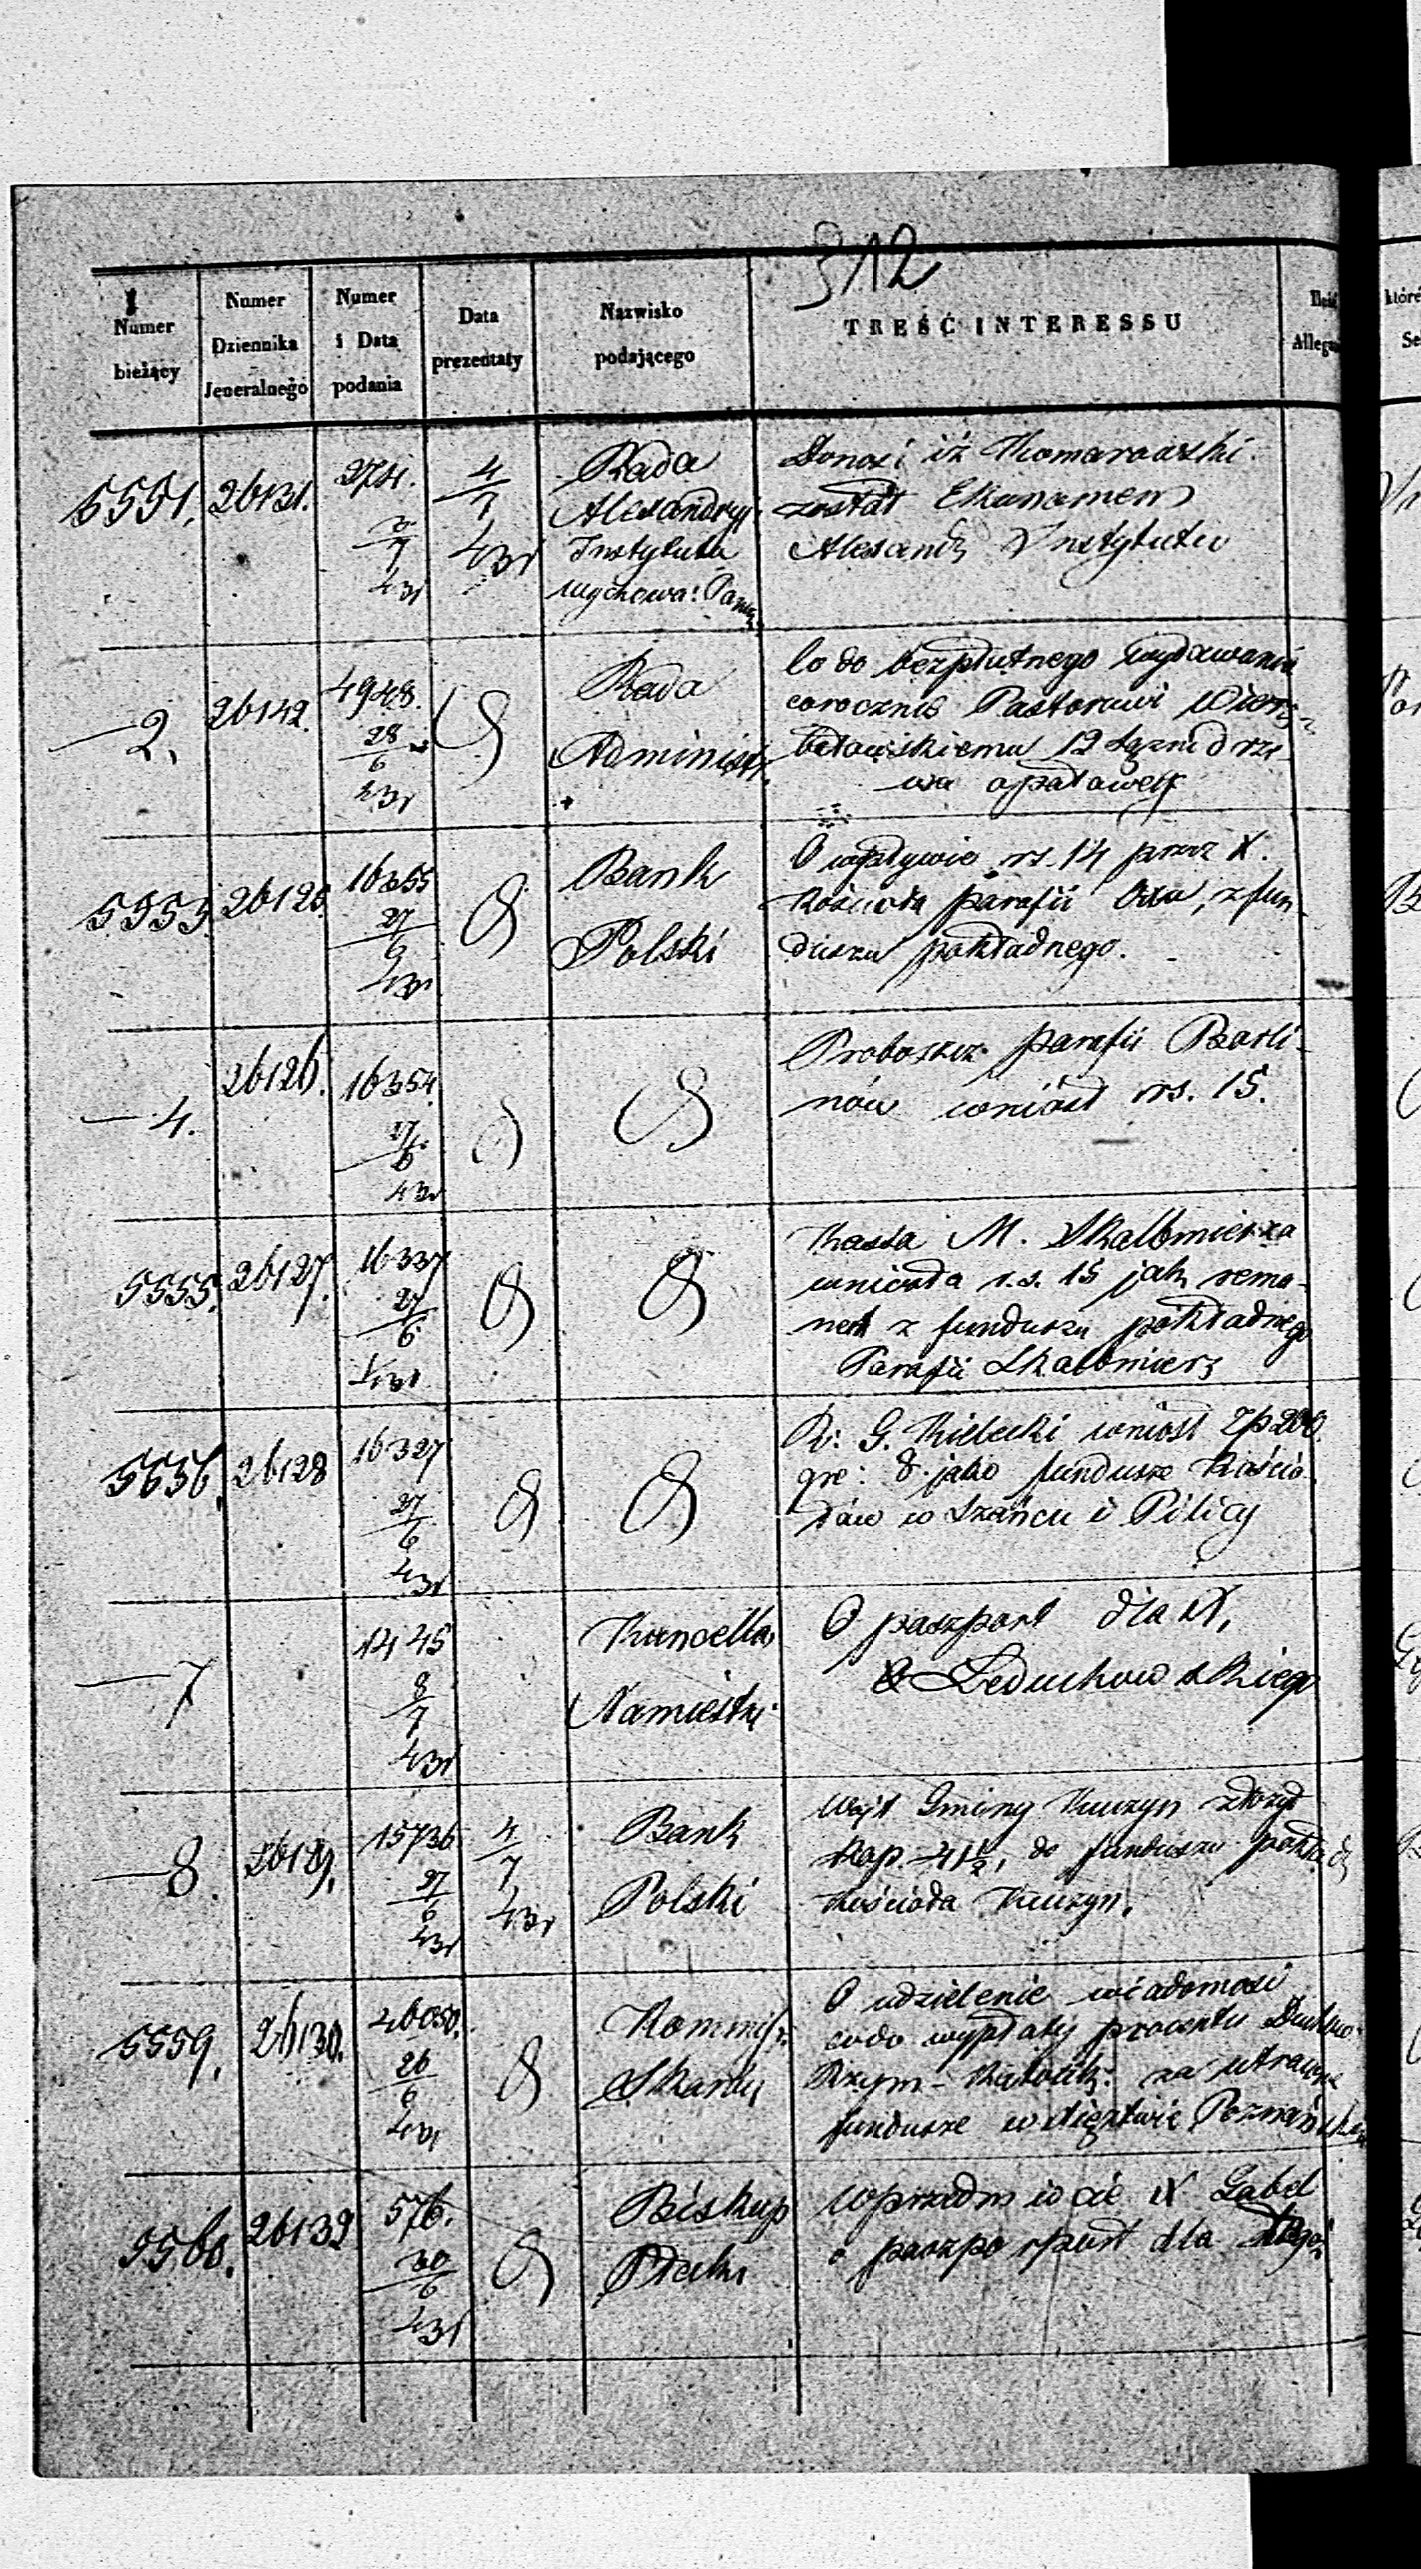 312
Numer bieżący
Numer Dziennika Jeneralnego
Numer i Data podania
Data prezentaty
Nazwisko podającego
TREŚĆ INTERESSU
5551. 26131.
4/7 431
Rada
Instytutu
Donosi iż Komarowski
został Ekonomem
Alexandr Instytutu
2. 26142. 4948. 28/6 431
Rada
Administr.
Co do bezpłatnego wydawania
corocznie Pastorowi Wierz-
bołowskiemu 12 sążni drze-
wa opałowey
5553. 26125. 16355 27/6 431
Bank
Polski
O wpływie rs. 14 przez X.
Kościoła parafii z fun-
duszu pokładnego.
4. 26126. 16354. 27/6 431
Proboszcz parafii
wniósł rs. 15.
5555. 26127. 16337 27/6 431
Kassa M. Skalbmierza
wniosła r.s. 15 jako rema-
nent z funduszu pokładnego
Parafii Skalbmierz
5556. 26128 16327 27/6 431
R: G. Kielecki wniósł
gr: 8 jako fundusze Kościo-
łów w Szańcu i Pilicy
7 1445 8/7 431
Namiestn.
O paszport dla X.
Leduchowskiego
8. 26129. 15736 27/6 431 4/7 431
Bank
Polski
Wójt Gminy Kuczyn złożył
Kop. 41½, do funduszu pokład
Kościoła Kuczyn.
5559. 26130. 26/6 431
Kommis.
Skarbu
O udzielenie wiadomości
co do wypłaty procentu Duchow.
Rzym-Katolik: za utracone
fundusze w Xięztwie Poznańskim
5560. 26132 576. 30/6 431
Biskup
W przedmiocie X Gabel
o paszport dla tegoż